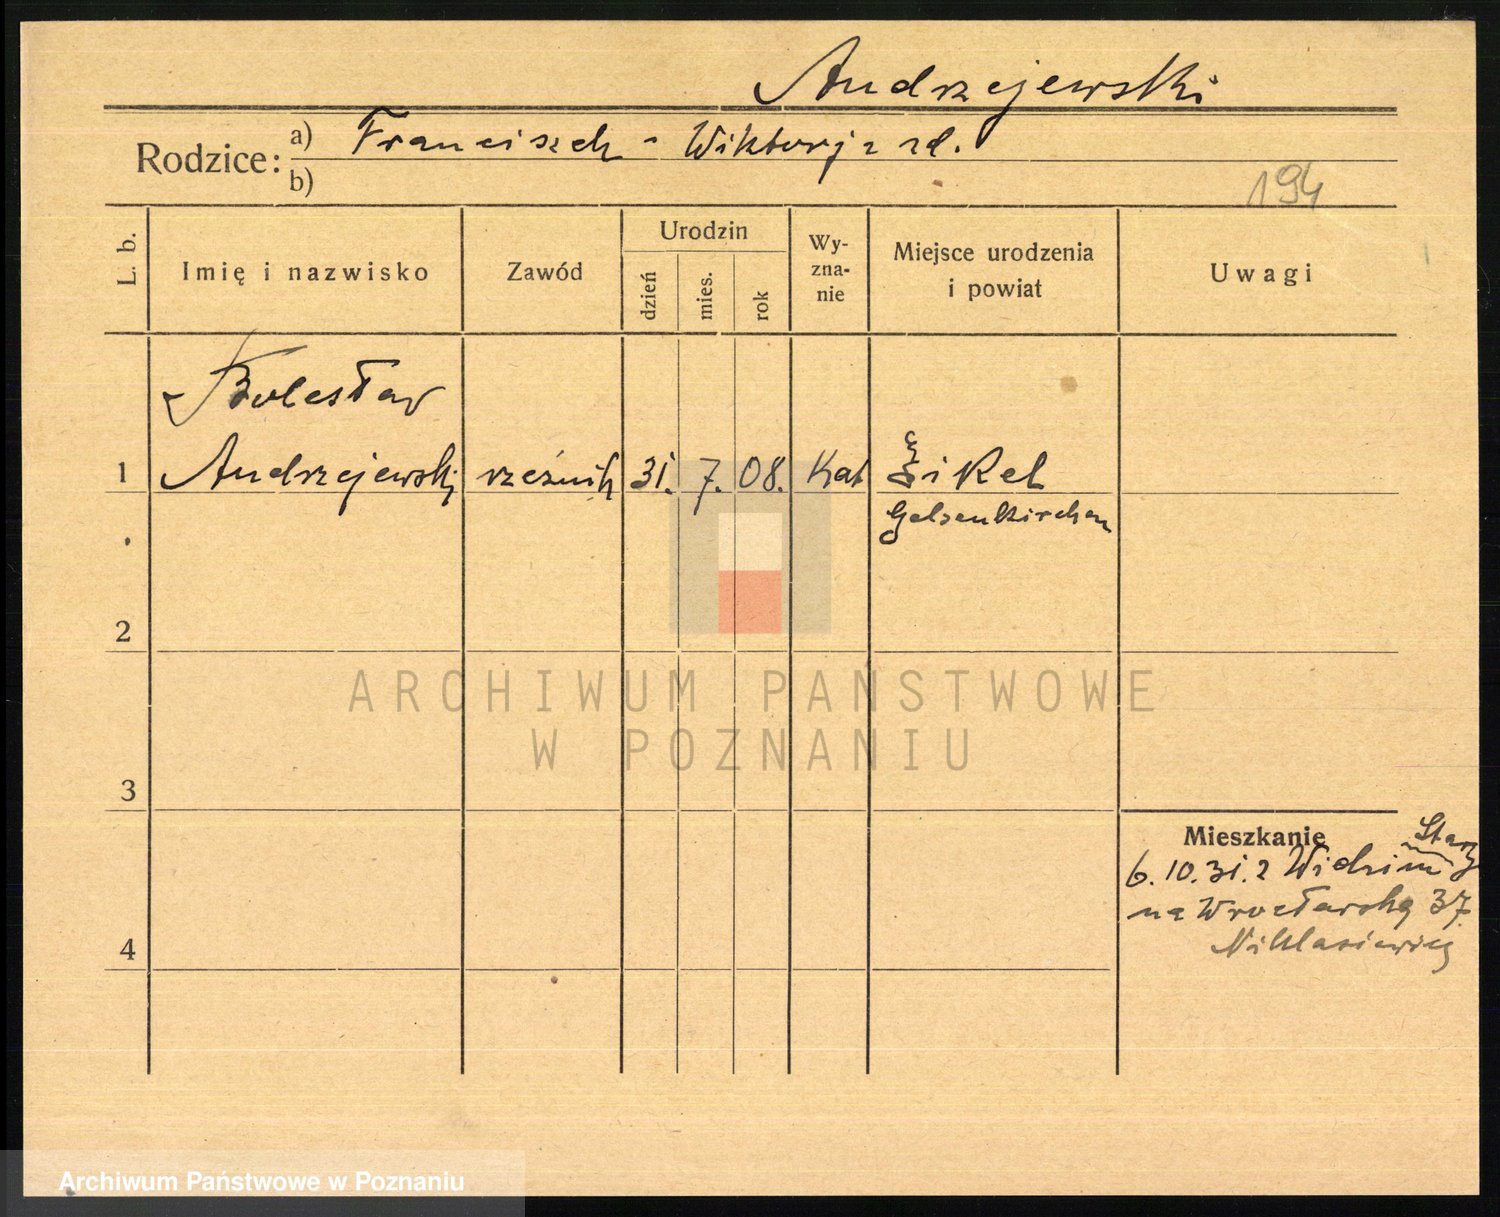 Andrzejewski
Rodzice: a) Franciszek - Wiktorja zd.
b)
194
L. b.
Imię i nazwisko
Zawód
Urodzin
dzień
mies.
rok
Wy-
zna-
nie
Miejsce urodzenia
i powiat
Uwagi
Bolesław
1 Andrzejewski rzeźnik 31. 7. 08. Kat
Gelsenkirchen
2
ARCHIWUM PAŃSTWOWE
W POZNANIU
3
Mieszkanie
6.10.31. z Widzim Stary
na Wrocławską 37
4
Archiwum Państwowe w Poznaniu